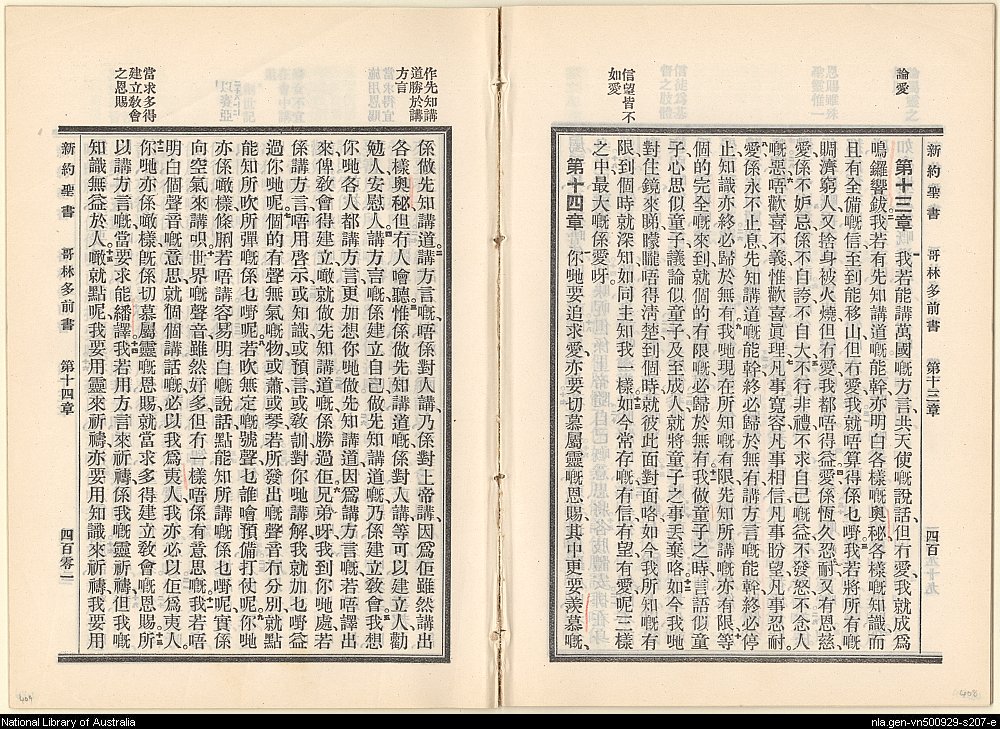 論愛
信望皆不
如愛
新約聖書 哥林多前書 第十三章 四百九十九
第十三章 我若能講萬國嘅方言、共天使嘅說話、但冇愛、我就成爲
鳴鑼響鈸、我若有先知講道嘅能幹、亦明白各樣嘅奧秘、各樣嘅知識、而
且有全備嘅信、至到能移山、但冇愛、我就唔算得係乜嘢、我若將所有嘅
賙濟窮人、又捨身被火燒、但冇愛、我都唔得益、愛係恆久忍耐、又有恩慈、
愛係不妒忌、係不自誇、不自大、不行非禮、不求自己嘅益、不發怒、不念人
嘅惡、唔歡喜不義、惟歡喜眞理、凡事寬容、凡事相信、凡事盼望、凡事忍耐。
愛係永不止息、先知講道嘅能幹、終必歸於無有、講方言嘅能幹、終必停
止、知識亦終必歸於無有、我哋現在所知嘅有限、先知所講嘅亦有限、等
個的完全嘅來到、就個的有限嘅、必歸於無有、我做童子之時、言語似童
子、心思似童子、議論似童子、及至成人、就將童子之事丟棄咯、如今我哋
對住鏡來睇、朦朧唔得淸楚、到個時、就彼此面對面咯、如今我所知嘅有
限、到個時就深知、如同主知我一樣、如今常存嘅、有信、有望、有愛、呢三樣
之中、最大嘅係愛呀。
第十四章 你哋要追求愛、亦要切慕屬靈嘅恩賜、其中更要羨慕嘅、
作先知講
道勝於講
方言
當求多得
建立敎會
之恩賜
係做先知講道、講方言嘅、唔係對人講、乃係對上帝講、因爲佢雖然講出
各樣奧秘、但冇人噲聽、惟係做先知講道嘅、係對人講、等可以建立人、勸
勉人、安慰人、講方言嘅、係建立自己、做先知講道嘅、乃係建立敎會、我想
你哋各人都講方言、更加想你哋做先知講道、因爲講方言嘅、若唔譯出
來、俾敎會得建立、噉就做先知講道嘅、係勝過佢、兄弟呀、我到你哋處、若
係講方言、唔用啓示、或知識、或預言、或敎訓、對你哋講解、我就加乜嘢益
過你哋呢、個的有聲無氣嘅物、或簫、或琴、若所發出嘅聲音冇分別、就點
能知所吹所彈嘅係乜嘢呢、若吹無定嘅號聲、乜誰噲預備打仗呢、你哋
亦係噉樣、條脷若唔講容易明白嘅說話、點能知所講嘅係乜嘢呢、實係
向空氣來講唄、世界嘅聲音、雖然好多、但冇一樣唔係有意思嘅、我若唔
明白個聲音嘅意思、就個個講話嘅、必以我爲夷人、我亦必以佢爲夷人。
你哋亦係噉樣、旣係切慕屬靈嘅恩賜、就當求多得建立敎會嘅恩賜、所
以講方言嘅、當要求能繙譯、我若用方言來祈禱、係我嘅靈祈禱、但我嘅
知識無益於人、噉就點呢、我要用靈來祈禱、亦要用知識來祈禱、我要用
新約聖書 哥林多前書 第十四章 四百零一
408
409
National Library of Australia
nla.gen-vn500929-s207-e